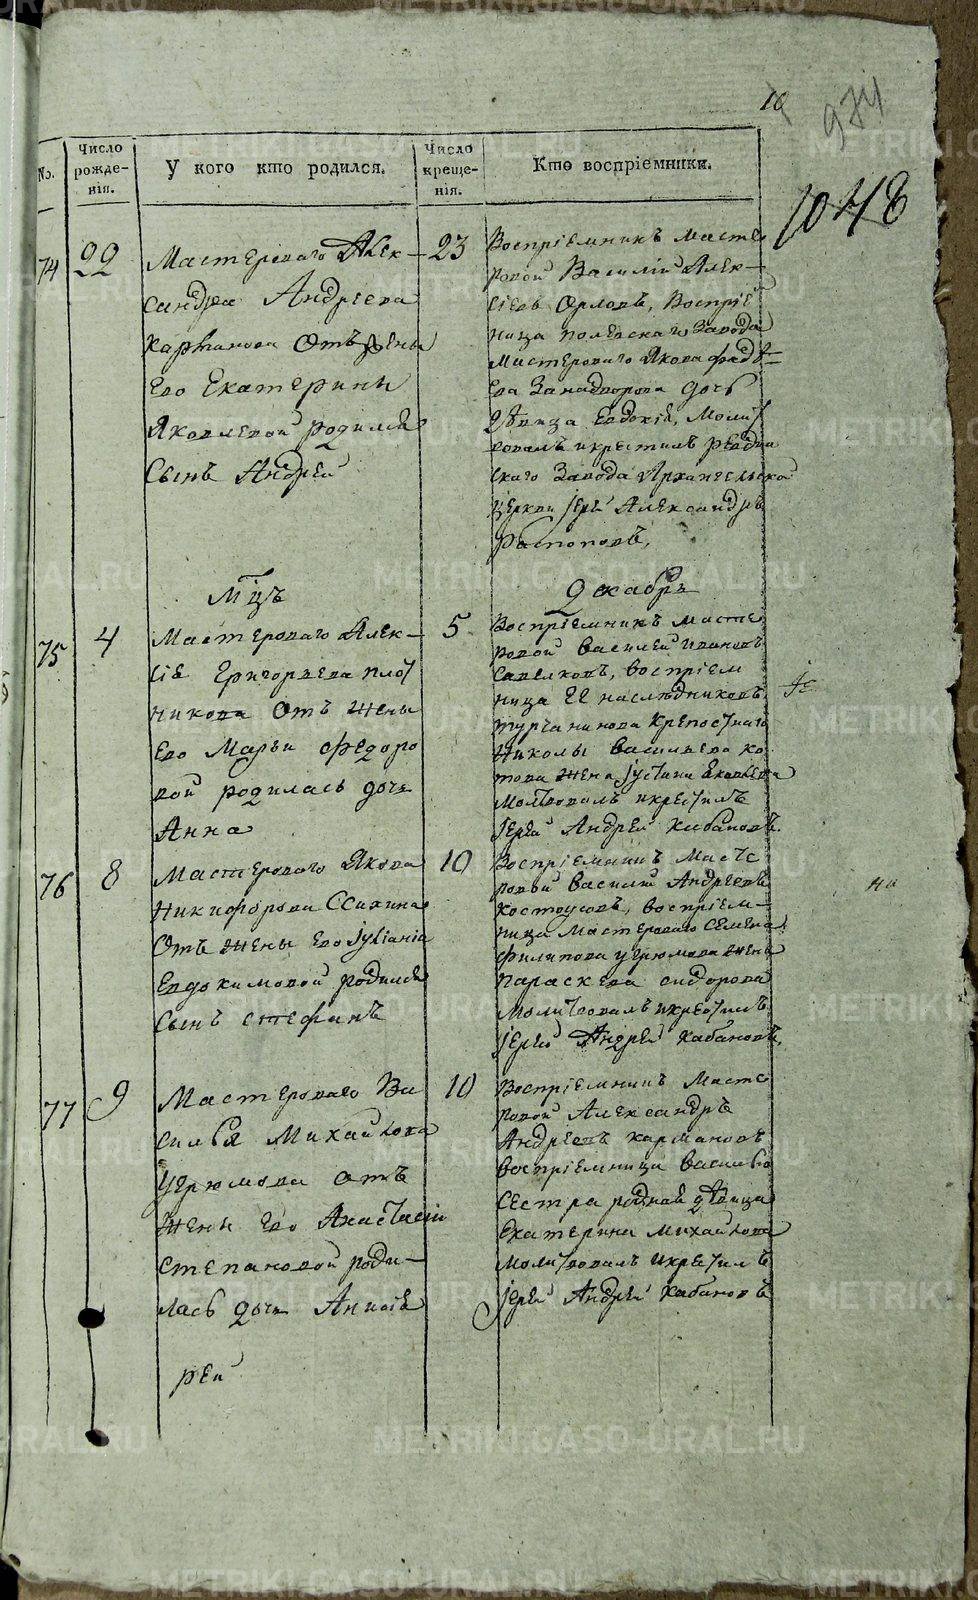 10
974
1048
№.
Число рожденія.
У кого кто родился.
Число крещенія.
Кто воспріемники.
74
22
Мастероваго Алек-
сандра Андреева
Карманова Отъ жены
Ево Екатерины
Яковлевой родился
Сынъ Андрей
23
Воспріемникъ масте
ровой Василий Алек-
сіевъ Орловъ, Воспріе
ница полевскаго Завода
мастероваго Якова
Ева дочь
дѣвица Евдокія, Молит
вовалъ икрестилъ ревдин
скаго Завода Архангельска
церкви іерей Александръ
Распоповъ,
Мцъ
Декабрь
75
4
Мастероваго Алек-
сіе Григорьева плот
никова Отъ Жены
Ево Марьи Федоро
вой родилась дочь
Анна
5
Воспріемникъ масте
ровой Василей Ивановъ
Савелковъ, воспріем
ница ЕЕ наслѣдниковъ
турчанинова Крепостнаго
Николы Васильева ко
това Жена Іустина Яковлева
молитвовалъ икрестилъ
Іерей Андрей Кабановъ
76
8
Мастероваго Якова
Никифорова
Отъ Жены Ево Іуліаніи
Евдокимовой родился
Сынъ Стефанъ
10
Воспріемникъ Масте
ровой Василий Андреевъ
Костоусовъ, воспріем-
ница Мастероваго Семена
Филипова угрюмова Жена
Параскева сидорова
Молитвовалъ икрестилъ
Іерей Андрей Кабановъ,
77
9
Мастероваго Ва
силья Михайлова
Угрюмова отъ
Жены Ево Анастасіи
Степановой роди-
лась дочь Анисіе
10
Воспріемникъ Масте
ровой Александръ
Андреевъ Кармановъ
воспріемница Васильева
Сестра родная дѣвица
Екатерина Михайлова
молитвовалъ икрестилъ
Іерей Андрей Кабановъ
рей
METRIKI.GASO-URAL.RU